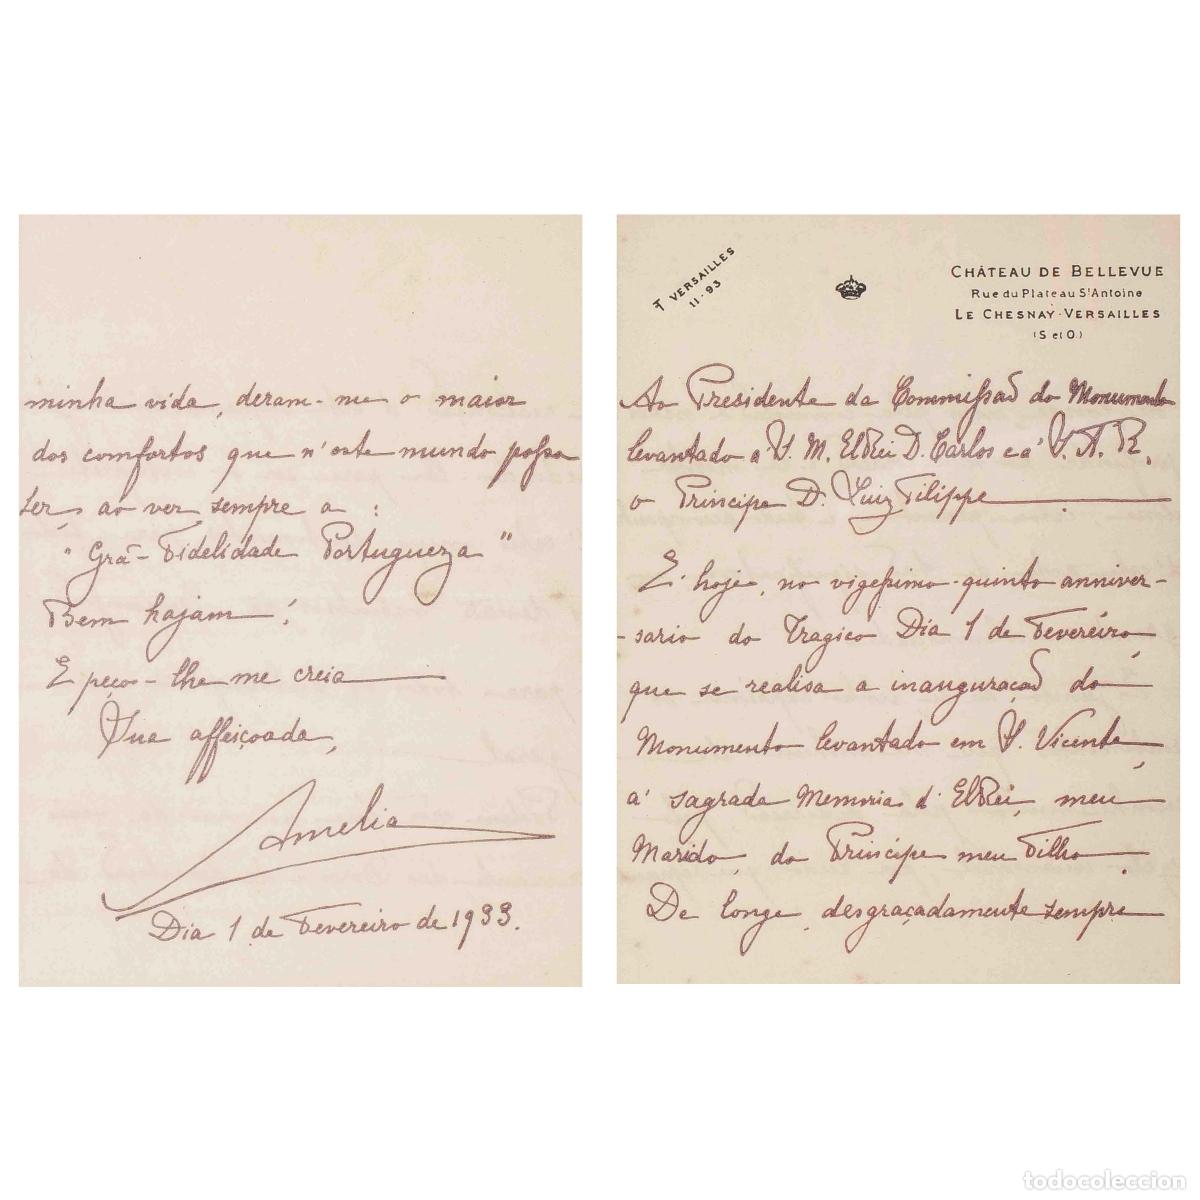 VERSAILLES
11-93
CHÂTEAU DE BELLEVUE
Rue du Plateau St Antoine
LE CHESNAY-VERSAILLES
(S et O)
Ao Presidente da Commissaõ do Monumento
levantado a S. M. ElRei D. Carlos e a' S. A. R.
o Principe D. Luiz Filippe
E' hoje, no vigessimo-quinto anniver-
-sario do Tragico Dia 1 de Fevereiro,
que se realisa a inauguraçaõ do
Monumento levantado em S. Vicente,
á sagrada Memoria d'ElRei, meu
Marido, do Principe meu Filho
De longe, desgraçadamente sempre
minha vida, deram-me o maior
dos comfortos que n'este mundo possa
ser, ao ver sempre a:
"Grã-Fidelidade Portugueza"
Bem hajam!
E peço-lhe me creia
Sua affeiçoada,
Amelia
Dia 1 de Fevereiro de 1933.
todocoleccion